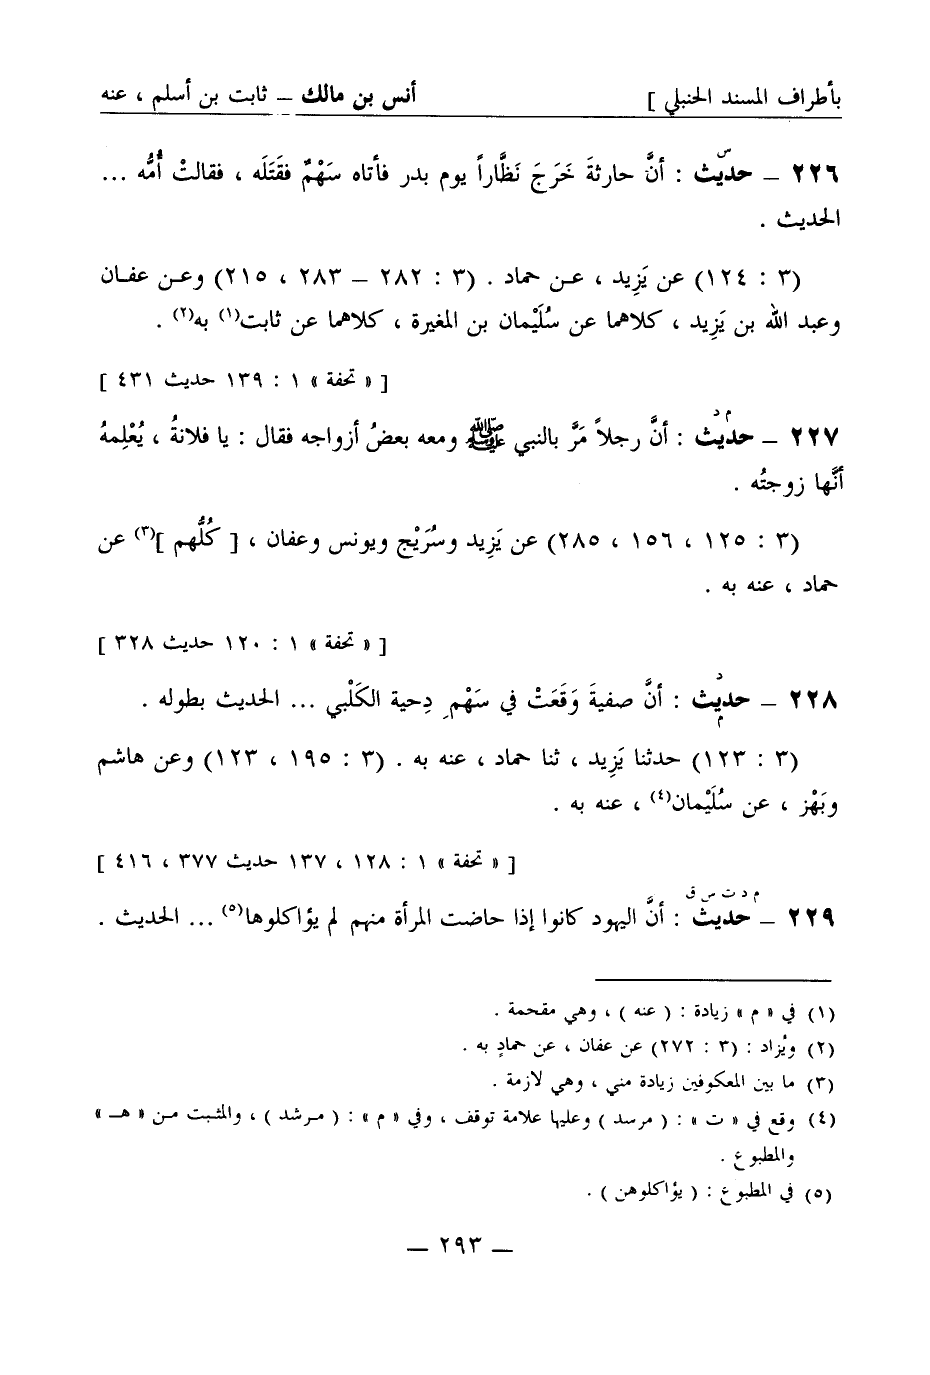 بأطراف المسند الحنبلي ] أنس بن مالك – ثابت بن أسلم ، عنه
س
٢٢٦ – حديث : أنَّ حارثةَ خَرَجَ نَظَّاراً يوم بدر فأتاه سَهْمٌ فقَتَلَه ، فقالتْ أُمُّه ...
الحديث .
(٣ : ١٢٤) عن يَزِيد ، عـن حماد . (٣ : ٢٨٢ – ٢٨٣ ، ٢١٥) وعـن عفـان
وعبد الله بن يَزِيد ، كلاهما عن سُلَيْمان بن المغيرة ، كلاهما عن ثابت(١) به(٢) .
[ « تحفة » ١ : ١٣٩ حديث ٤٣١ ]
م د
٢٢٧ – حديث : أنَّ رجلاً مَرَّ بالنبي ﷺ ومعه بعضُ أزواجه فقال : يا فلانةُ ، يُعْلِمهُ
أنَّها زوجتُه .
(٣ : ١٢٥ ، ١٥٦ ، ٢٨٥) عن يَزِيد وسُرَيْج ويونس وعفان ، [ كُلُّهم ](٣) عن
حماد ، عنه به .
[ « تحفة » ١ : ١٢٠ حديث ٣٢٨ ]
د
٢٢٨ – حديث : أنَّ صفيةَ وَقَعَتْ في سَهْمِ دِحية الكَلْبي ... الحديث بطوله .
م
(٣ : ١٢٣) حدثنا يَزِيد ، ثنا حماد ، عنه به . (٣ : ١٩٥ ، ١٢٣) وعن هاشم
وبَهْز ، عن سُلَيْمان(٤) ، عنه به .
[ « تحفة » ١ : ١٢٨ ، ١٣٧ حديث ٣٧٧ ، ٤١٦ ]
م د ت س ق
٢٢٩ – حديث : أنَّ اليهود كانوا إذا حاضت المرأة منهم لم يؤاكلوها(٥) ... الحديث .
(١) في « م » زيادة : ( عنه ) ، وهي مقحمة .
(٢) ويُزاد : (٣ : ٢٧٢) عن عفان ، عن حمادٍ به .
(٣) ما بين المعكوفين زيادة مني ، وهي لازمة .
(٤) وقع في « ت » : ( مرسد ) وعليها علامة توقف ، وفي « م » : ( مـرشد ) ، والمثبت مـن « هـ »
والمطبوع .
(٥) في المطبوع : ( يؤاكلوهن ) .
– ٢٩٣ –